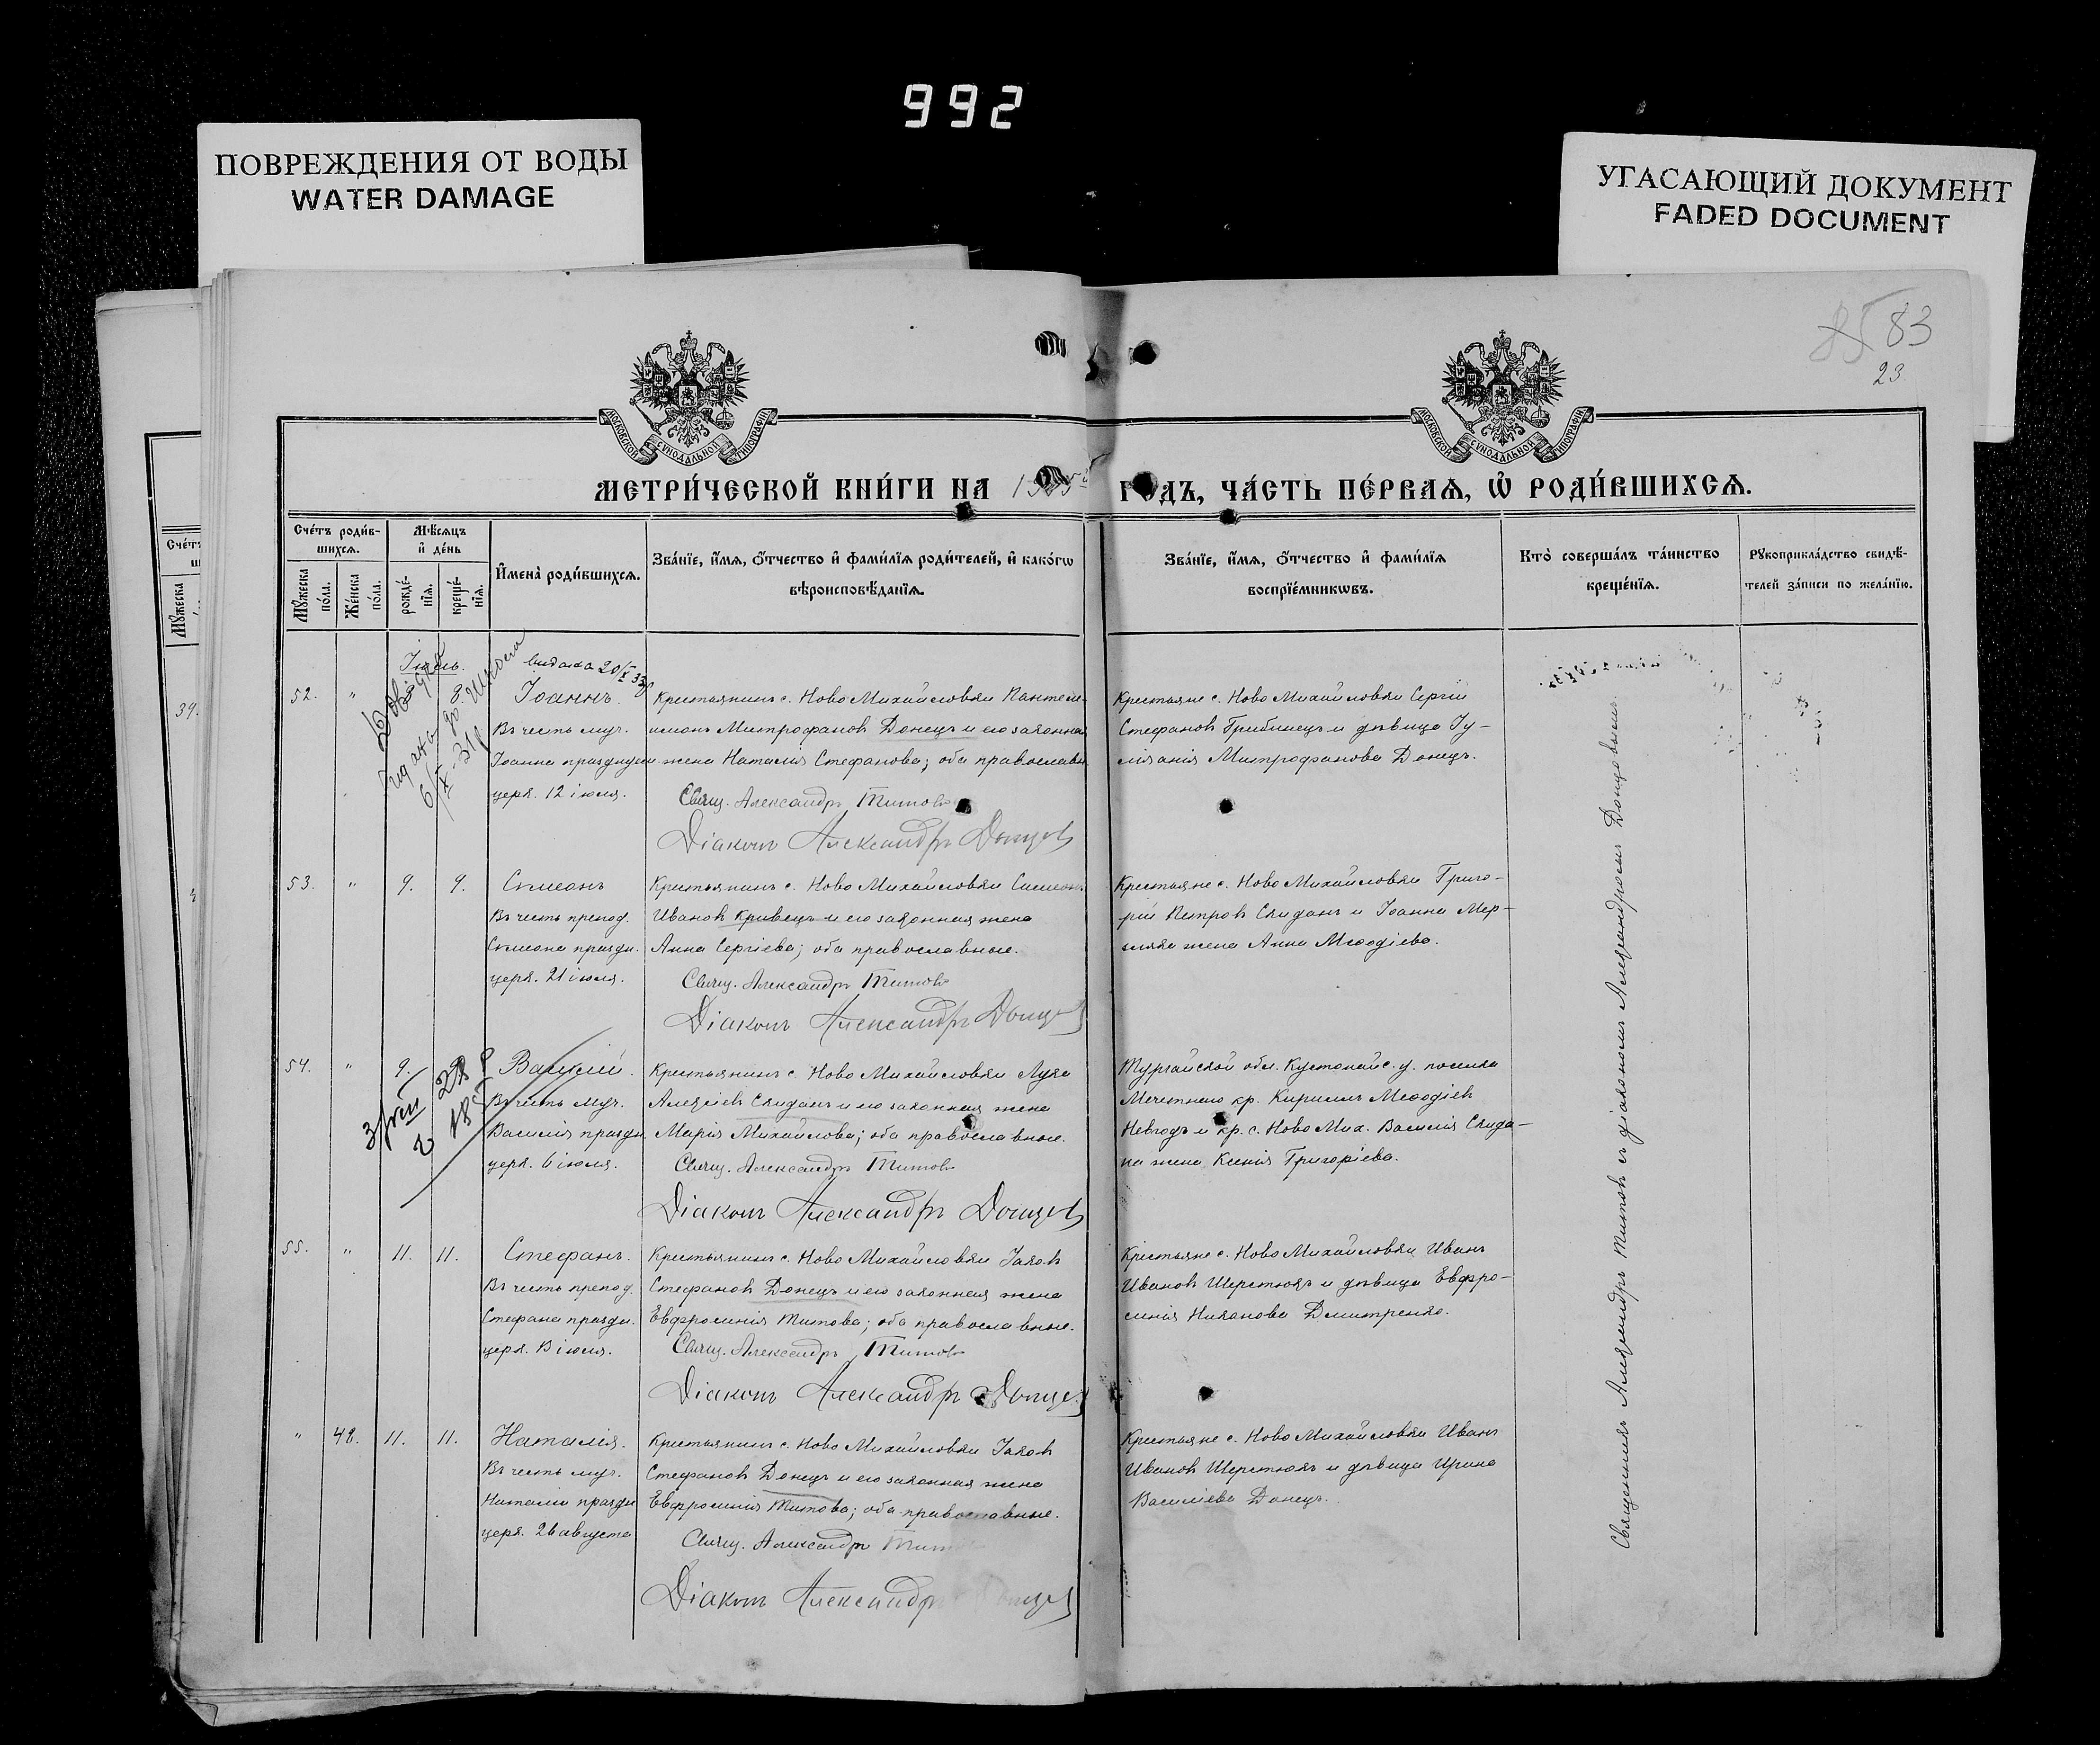 992
ПОВРЕЖДЕНИЯ ОТ ВОДЫ
WATER DAMAGE
УГАСАЮЩИЙ ДОКУМЕНТ
FADED DOCUMENT
85 83
23
МОСКОВСКОЙ СѴНОДАЛЬНОЙ ТИПОГРАФІИ
МОСКОВСКОЙ СѴНОДАЛЬНОЙ ТИПОГРАФІИ
МЕТРИ́ЧЕСКОЙ КНИ́ГИ НА
ГОДЪ, ЧА́СТЬ ПЕ́РВАѦ, Ѡ҆ РОДИ́ВШИХСѦ.
Сче́тъ роди́в-
шихсѧ.
Мꙋ́жеска по́ла.
Же́нска по́ла.
Мѣ́сѧцъ
и҆ де́нь
рожде́-
нїѧ.
креще́-
нїѧ.
И҆мена̀ роди́вшихсѧ.
Зва́нїе, и҆́мѧ, ѻ҆́тчество и҆ фами́лїѧ роди́телей, и҆ како́гѡ
вѣроисповѣ́данїѧ.
Зва́нїе, и҆́мѧ, ѻ҆́тчество и҆ фами́лїѧ
воспрїе́мникѡвъ.
Кто̀ соверша́лъ та́инство
креще́нїѧ.
Рꙋкоприкла́дство свидѣ́-
телей за́писи по жела́нїю.
Сче́тъ
Мꙋ́жеска
39.
Іюль.
52. " 8.
Іоаннъ.
Въ честь муч.
Іоанна празднуем.
церк. 12 іюля.
Крестьянинъ с. Ново Михайловки Пантеле-
имонъ Митрофановъ Донецъ и его законная
жена Наталия Стефанова; оба православн.
Свящ. Александръ Титовъ
Діаконъ Александръ Донцовъ
Крестьяне с. Ново Михайловки Сергій
Стефановъ Грибинецъ и дѣвица Іу-
ліанія Митрофанова Донецъ.
53. " 9. 9.
Сѵмеонъ
Въ честь препод.
Сѵмеона праздн.
церк. 21 іюля.
Крестьянинъ с. Ново Михайловки Симеонъ
Ивановъ Кривецъ и его законная жена
Анна Сергіева; оба православные.
Свящ. Александръ Титовъ
Діаконъ Александръ Донцовъ
Крестьяне с. Ново Михайловки Григо-
рій Петровъ Скиданъ и Іоанна Мер-
жена Анна Меѳодіева.
54. " 9.
Василій.
Въ честь муч.
Василія праздн.
церк. 6 іюля.
Крестьянинъ с. Ново Михайловки Лука
Алексіевъ Скиданъ и его законная жена
Марія Михайлова; оба православные.
Свящ. Александръ Титовъ
Діаконъ Александръ Донцовъ
Тургайской обл. Кустанайс. у. поселка
Мечетнаго кр. Кириллъ Меѳодіевъ
и кр. с. Ново Мих. Василія Скида-
на жена Ксенія Григоріева.
55. " 11. 11.
Стефанъ.
Въ честь препод.
Стефана праздн.
церк. 13 іюля.
Крестьянинъ с. Ново Михайловки Іаковъ
Стефановъ Донецъ и его законная жена
Евфросинія Титова; оба православные.
Свящ. Александръ Титовъ
Діаконъ Александръ Донцовъ
Крестьяне с. Ново Михайловки Иванъ
Ивановъ Шерстюкъ и дѣвица Евфро-
синія Никонова Дмитренко.
" 48. 11. 11.
Наталія.
Въ честь муч.
Наталіи праздн.
церк. 26 августа
Крестьянинъ с. Ново Михайловки Іаковъ
Стефановъ Донецъ и его законная жена
Евфросинія Титова; оба православные.
Свящ. Александръ Титовъ
Діаконъ Александръ Донцовъ
Крестьяне с. Ново Михайловки Иванъ
Ивановъ Шерстюкъ и дѣвица Ирина
Василіева Донецъ.
Священникъ Александръ Титовъ съ діакономъ Александромъ Донцовымъ